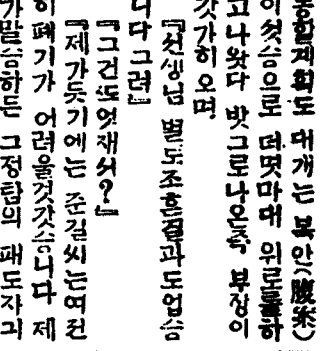 동할계획도 대개는 복안(腹案)
이 첫슴으로 더몃마대 위로를하
고나왓다 밧그로나온즉 부장이
갓가히 오며
『선생님 별도조흔결과도업슴
니다그려』
『그건또엇재서?』
『제가듯기에는 준길씨는여전
히 페기가 어려울것갓슴니다 제
가말슴하든 그정탐의 패도자긔